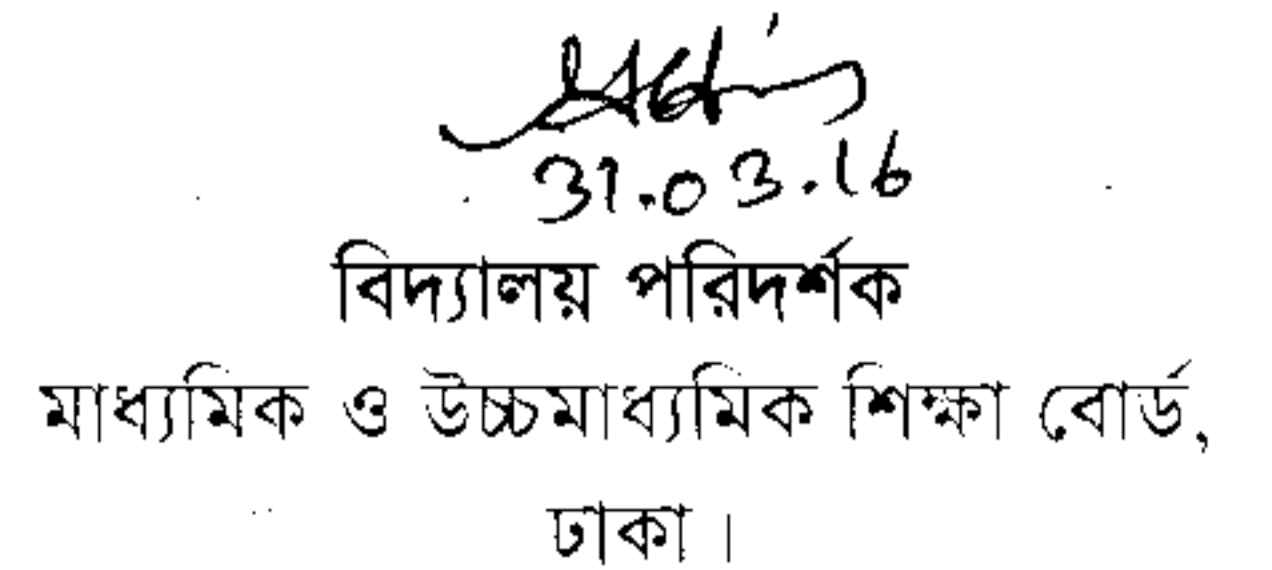 31.03.16
বিদ্যালয় পরিদর্শক
মাধ্যমিক ও উচ্চমাধ্যমিক শিক্ষা বোর্ড,
ঢাকা।